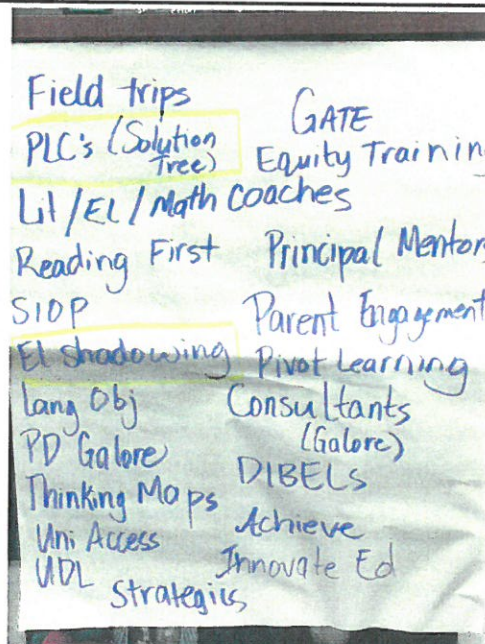 Field trips
PLC's (Solution
Tree)
Lit/EL/Math Coaches
Reading First
SIOP
El shadowing
Lang Obj
PD Galore
Thinking Maps
Uni Access
UDL
Strategies
GATE
Equity Training
Principal Mentors
Parent Engagement
Pivot Learning
Consultants
(Galore)
DIBELS
Achieve
Innovate Ed